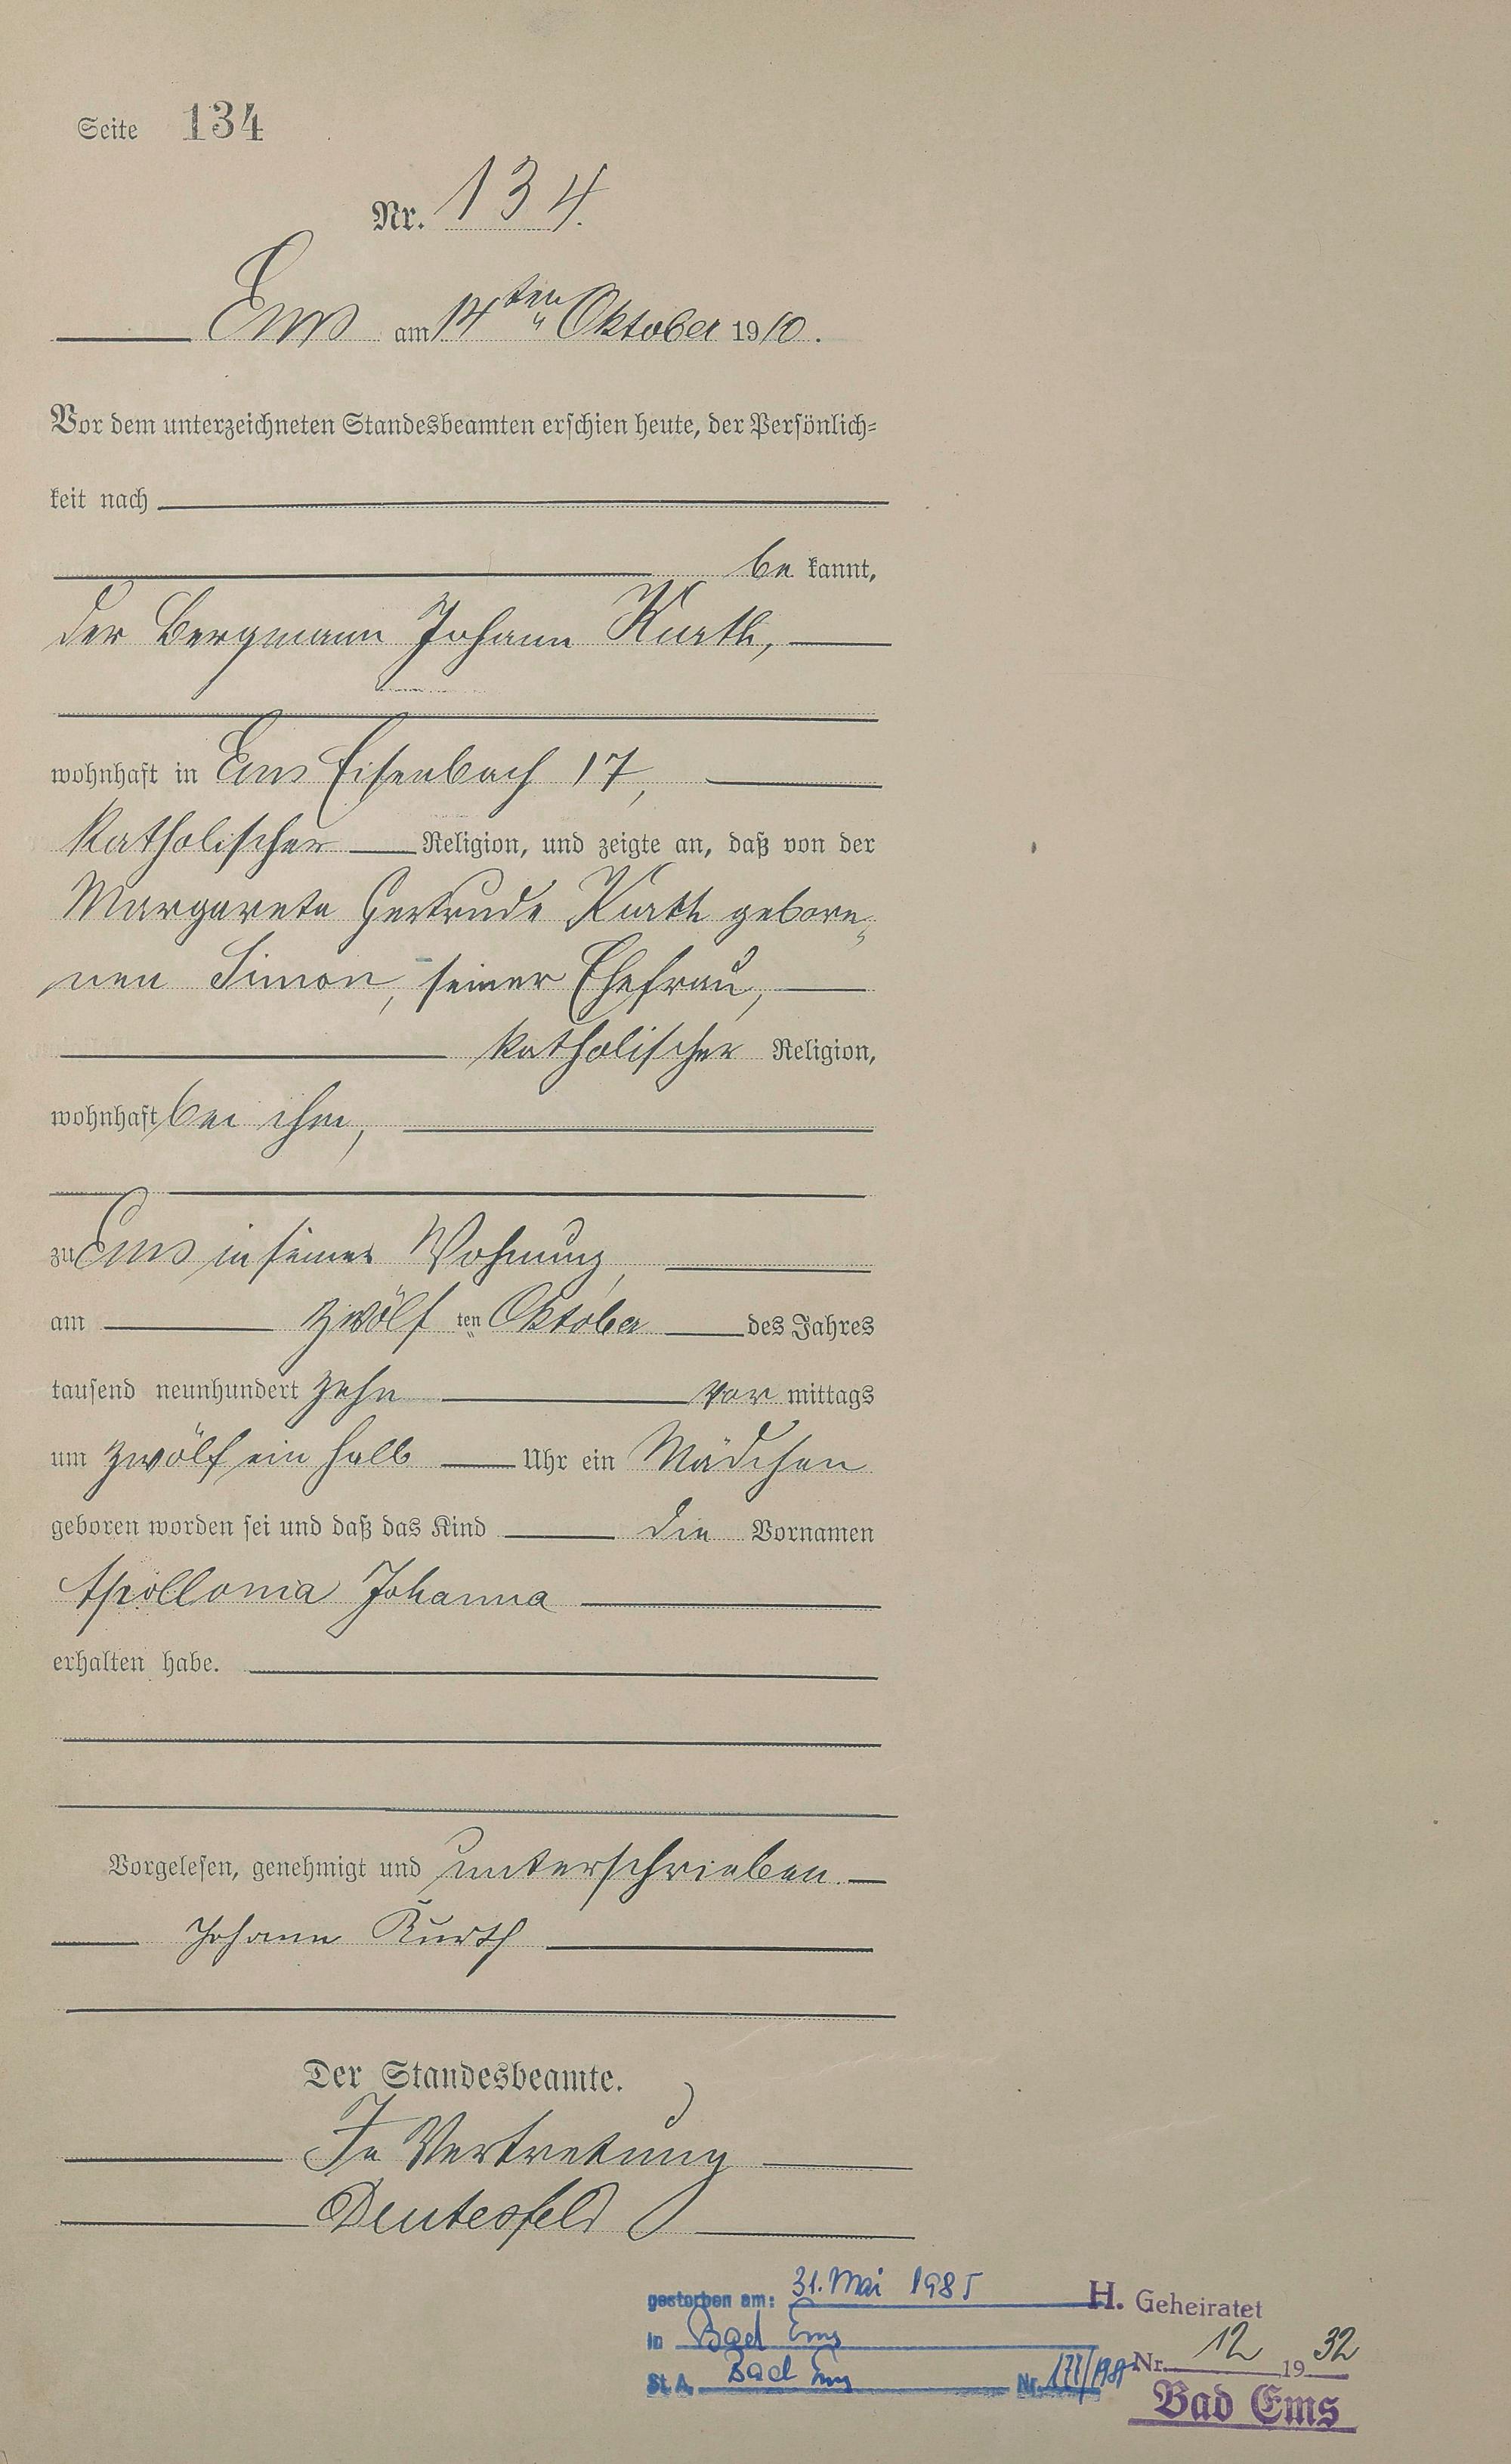 Seite 134
Nr. 134.
Ems am 14ten Oktober 1910.
Vor dem unterzeichneten Standesbeamten erschien heute, der Persönlich=
keit nach
be kannt,
der Bergmann Johann Kurth,
wohnhaft in Ems Eisenbach 17,
katholischer Religion, und zeigte an, daß von der
Margareta Gertrude Kurth gebore„
nen Simon, seiner Ehefrau,
katholischer Religion,
wohnhaft bei ihm,
zu Ems in seiner Wohnung,
am zwölf ten Oktober des Jahres
tausend neunhundert zehn vor mittags
um zwölf ein halb Uhr ein Mädchen
geboren worden sei und daß das Kind die Vornamen
Apollonia Johanna
erhalten habe.
Vorgelesen, genehmigt und unterschrieben.
Johann Kurth
Der Standesbeamte.
In Vertretung
Deutesfeld
gestorben am: 31. Mai 1985
in Bad Ems
St. A. Bad Ems Nr.
H. Geheiratet
Nr. 12 1932
Bad Ems